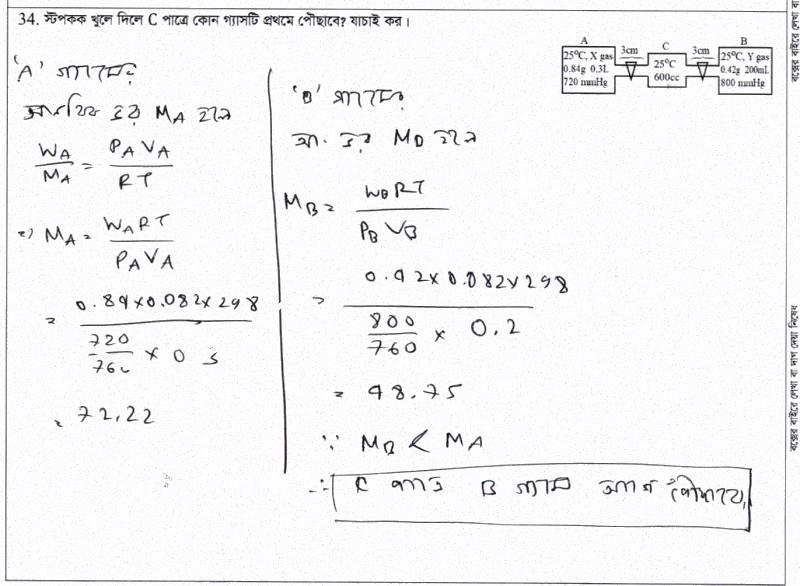 34. স্টপকক খুলে দিলে C পাত্রে কোন গ্যাসটি প্রথমে পৌছাবে? যাচাই কর।
A
25°C, X gas
0.84g 0.3L
720 mmHg
3cm
C
25°C
600cc
3cm
B
25°C, Y gas
0.42g 200mL
800 mmHg
'A' গ্যাসের
আনবিক ভর MA হলে
WA/MA = PAVA/RT
=) MA = WART/PAVA
= 0.84×0.082×298 / 720/760 × 0.3
= 72.22
'B' গ্যাসের
আ. ভর MB হলে
MB = WBRT/PBVB
= 0.42×0.082×298 / 800/760 × 0.2
= 48.75
∵ MB < MA
∴ C পাত্রে B গ্যাস আগে পৌছাবে,
বক্সের বাইরে লেখা বা দাগ দেয়া নিষেধ